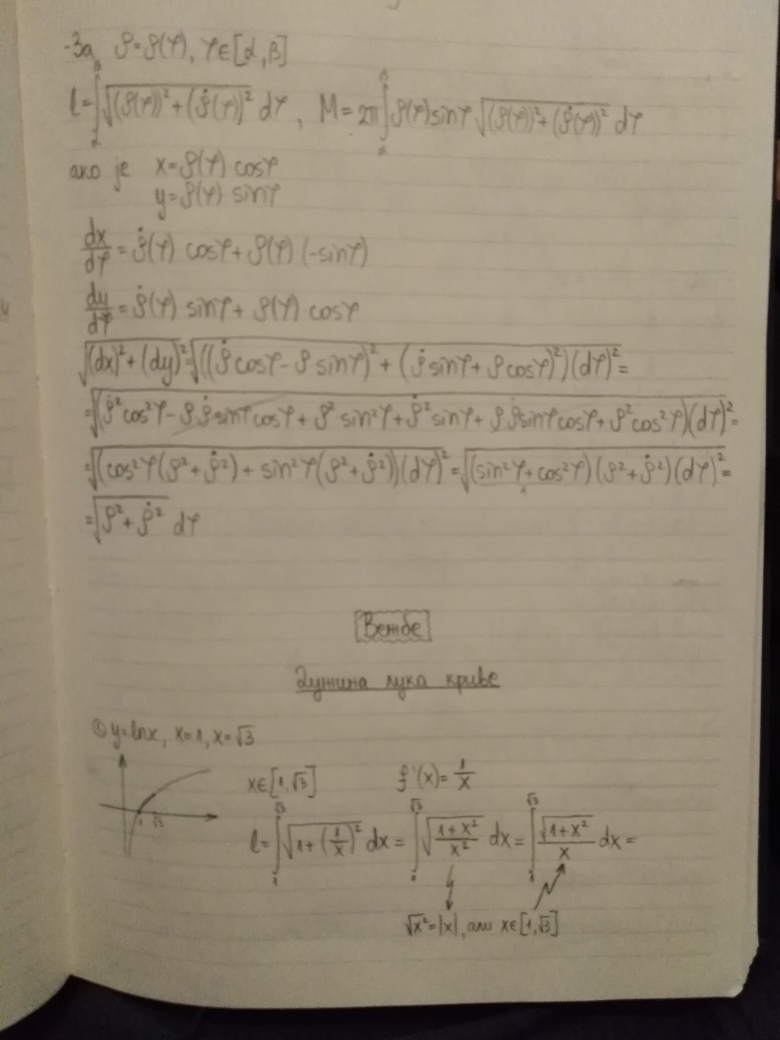 -За ρ=ρ(φ), φ∈[α,β]
l=∫_α^β √((ρ(φ))²+(ρ̇(φ))²) dφ, M=2π∫_α^β ρ(φ)sinφ √((ρ(φ))²+(ρ̇(φ))²) dφ
ako je x=ρ(φ) cosφ
y=ρ(φ) sinφ
dx/dφ=ρ̇(φ) cosφ+ρ(φ)(-sinφ)
dy/dφ=ρ̇(φ) sinφ+ρ(φ) cosφ
√((dx)²+(dy)²)=√(((ρ̇cosφ-ρsinφ)²+(ρ̇sinφ+ρcosφ)²)(dφ)²)=
=√((ρ̇²cos²φ-ρρ̇sinφcosφ+ρ²sin²φ+ρ̇²sin²φ+ρρ̇sinφcosφ+ρ²cos²φ)(dφ)²)=
=√((cos²φ(ρ²+ρ̇²)+sin²φ(ρ²+ρ̇²))(dφ)²)=√((sin²φ+cos²φ)(ρ²+ρ̇²)(dφ)²)=
=√(ρ²+ρ̇²) dφ
Вежбе
Дужина лука криве
① y=lnx, x=1, x=√3
x∈[1,√3] f'(x)=1/x
l=∫_1^√3 √(1+(1/x)²) dx=∫_1^√3 √((1+x²)/x²) dx=∫_1^√3 √(1+x²)/x dx=
1 √3
√x²=|x|, али x∈[1,√3]